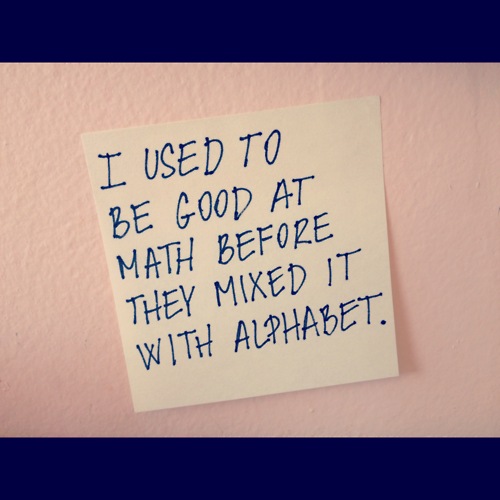 I USED TO
BE GOOD AT
MATH BEFORE
THEY MIXED IT
WITH ALPHABET.